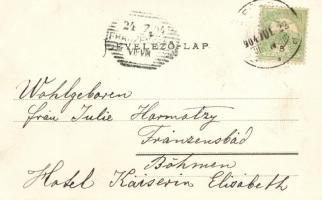 24 7 04
LEVELEZŐ-LAP
904 JUL 23
Wohlgeboren
Frau Julie Harmatzy
Franzensbad
Böhmen
Hotel Kaiserin Elisabeth